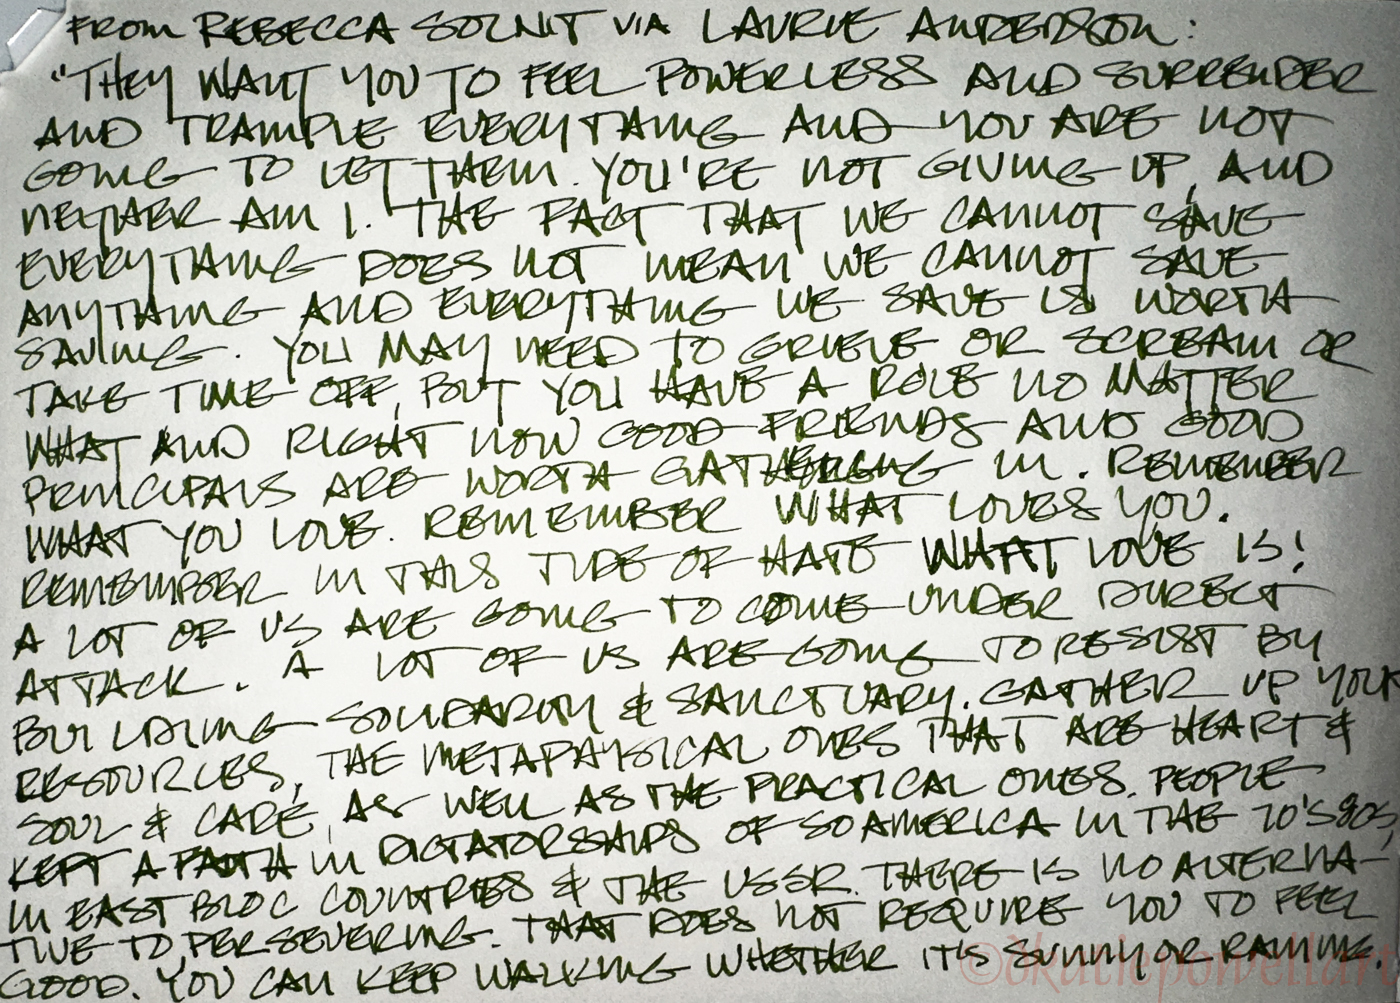 FROM REBECCA SOLNIT VIA LAURIE ANDERSON:
"THEY WANT YOU TO FEEL POWERLESS AND SURRENDER
AND TRAMPLE EVERYTHING AND YOU ARE NOT
GOING TO LET THEM. YOU'RE NOT GIVING UP, AND
NEITHER AM I. THE FACT THAT WE CANNOT SAVE
EVERYTHING DOES NOT MEAN WE CANNOT SAVE
ANYTHING AND EVERYTHING WE SAVE IS WORTH
SAVING. YOU MAY NEED TO GRIEVE OR SCREAM OR
TAKE TIME OFF, BUT YOU HAVE A ROLE NO MATTER
WHAT AND RIGHT NOW GOOD FRIENDS AND GOOD
PRINCIPALS ARE WORTH GATHERING IN. REMEMBER
WHAT YOU LOVE. REMEMBER WHAT LOVES YOU.
REMEMBER IN THIS TIDE OF HATE WHAT LOVE IS!
A LOT OF US ARE GOING TO COME UNDER DIRECT
ATTACK. A LOT OF US ARE GOING TO RESIST BY
BUILDING SOLIDARITY & SANCTUARY. GATHER UP YOUR
RESOURCES, THE METAPHYSICAL ONES THAT ARE HEART &
SOUL & CARE, AS WELL AS THE PRACTICAL ONES. PEOPLE
KEPT A FAITH IN DICTATORSHIPS OF SO AMERICA IN THE 70'S 80S,
IN EAST BLOC COUNTRIES & THE USSR. THERE IS NO ALTERNA-
TIVE TO PERSEVERING. THAT DOES NOT REQUIRE YOU TO FEEL
GOOD. YOU CAN KEEP WALKING WHETHER IT'S SUNNY OR RAINING.
©katiepowellart